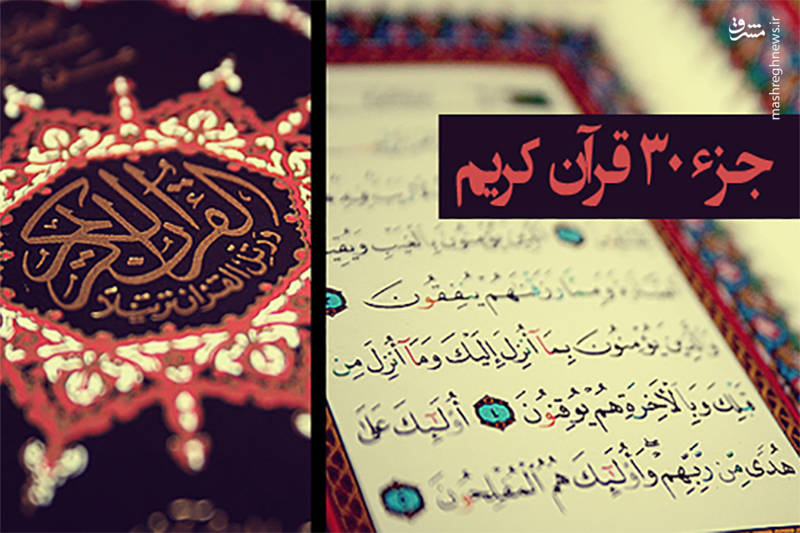 مشرق
mashreghnews.ir
جزء ۳۰ قرآن کریم
القرآن الكريم
ورتل القرآن ترتيلا
يُؤْمِنُونَ بِالْغَيْبِ وَيُقِيـ
وَمِمَّا رَزَقْنَٰهُمْ يُنفِقُونَ ٣
وَالَّذِينَ يُؤْمِنُونَ بِمَآ أُنزِلَ إِلَيْكَ وَمَآ أُنزِلَ مِن
قَبْلِكَ وَبِالْآخِرَةِ هُمْ يُوقِنُونَ ٤ أُولَٰٓئِكَ عَلَىٰ
هُدًى مِّن رَّبِّهِمْ ۖ وَأُولَٰٓئِكَ هُمُ الْمُفْلِحُونَ ٥